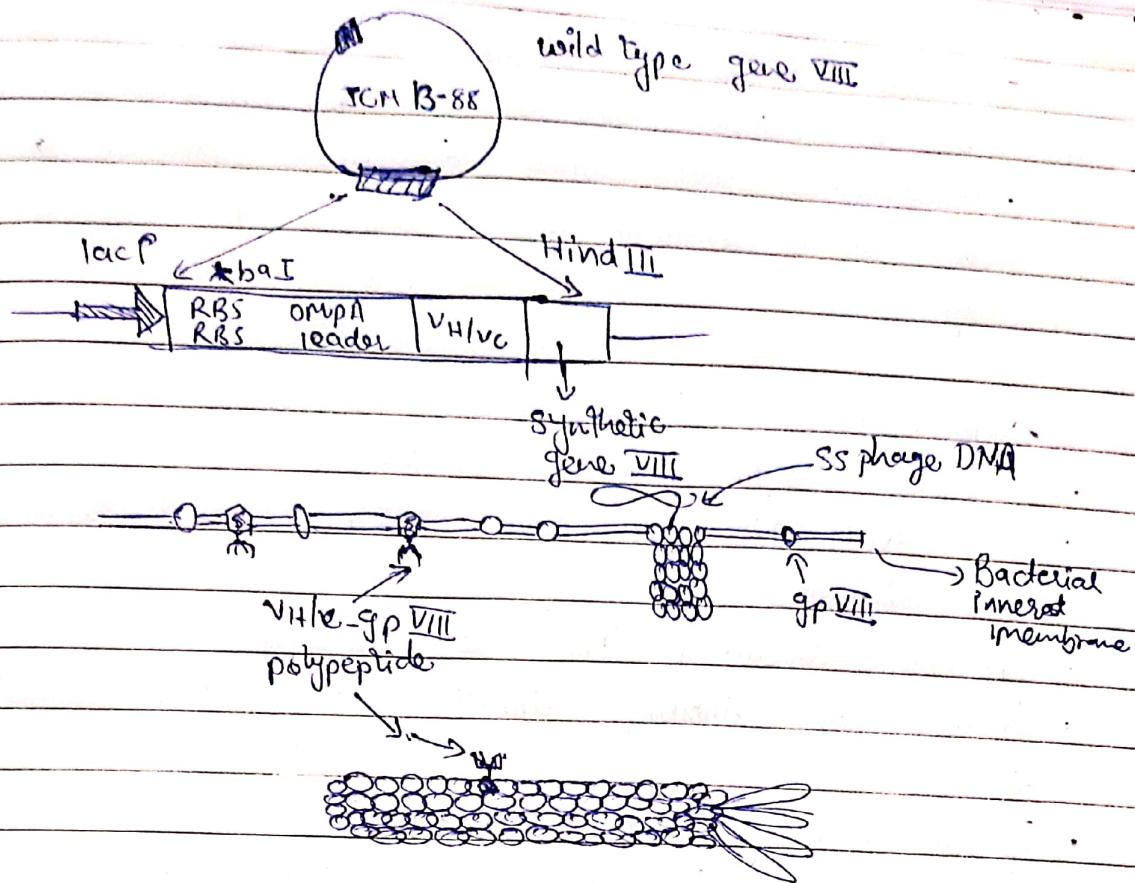 wild type gene VIII
13-88
lac P
baI
Hind III
RBS OMpA
RBS leader
VH/VC
Synthetic
gene VIII
SS phage DNA
gp VIII
Bacterial
membrane
gp VIII
polypeptide